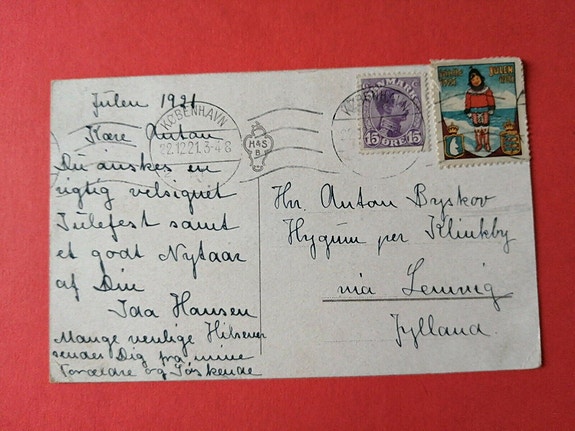 Julen 1921
Kære Anton
Du ønskes en
rigtig velsignet
Julefest samt
et godt Nytaar
af Din
Ida Hansen
Mange venlige Hilsener
sender Dig fra mine
Forældre og Søskende
KØBENHAVN
22.12.21. 3-4 8
H&S
B.
DANMARK
15 ØRE 15
JULEN
Hr. Anton Byskov
Hygum per Klinkby
via Lemvig
Jylland.